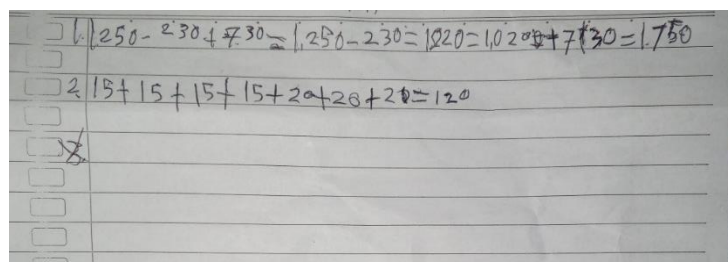 1. 1.250 - 230 + 730 = 1.250 - 230 = 1020 = 1,020 + 730 = 1.750
2. 15 + 15 + 15 + 15 + 20 + 20 + 20 = 120